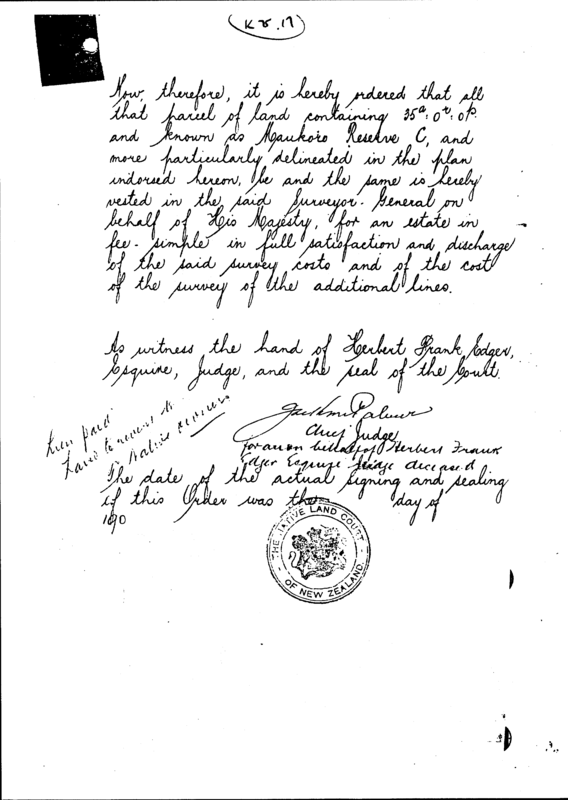 (K 8.17)
Now, therefore, it is hereby ordered that all
that parcel of land containing 35a: 0r: 0p.
and known as Maukoro Reserve C, and
more particularly delineated in the plan
indorsed hereon, be and the same is hereby
vested in the said Surveyor-General on
behalf of His Majesty, for an estate in
fee-simple in full satisfaction and discharge
of the said survey costs and of the cost
of the survey of the additional lines.
As witness the hand of Herbert Frank Edger,
Esquire, Judge, and the seal of the Court.
Lien paid
Land to revert to
Native owners
Jackson Palmer
Chief Judge
for and on behalf of Herbert Frank
Edger Esquire Judge deceased
The date of the actual signing and sealing
of this Order was the day of
19
THE NATIVE LAND COURT
OF NEW ZEALAND